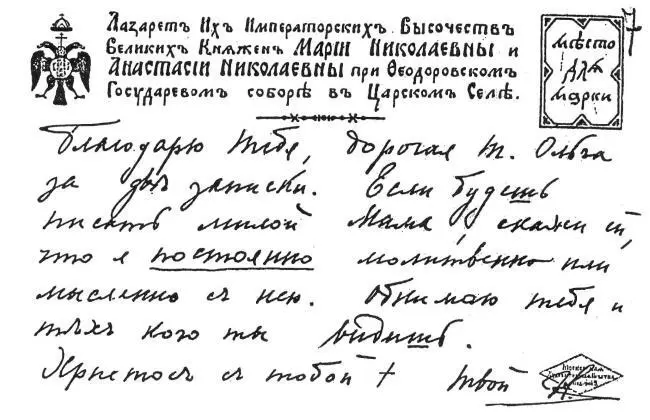 Лазаретъ Ихъ Императорскихъ Высочествъ
Великихъ Княженъ Маріи Николаевны и
Анастасіи Николаевны при Ѳеодоровскомъ
Государевомъ соборѣ въ Царскомъ Селѣ.
мѣсто
для
марки
7
Благодарю тебя, дорогая т. Ольга
за двѣ записки. Если будешь
писать милой Мама скажи ей,
что я постоянно молитвенно или
мысленно съ нею. Обнимаю тебя и
тѣхъ кого ты видишь.
Христосъ съ тобой † твой Н.